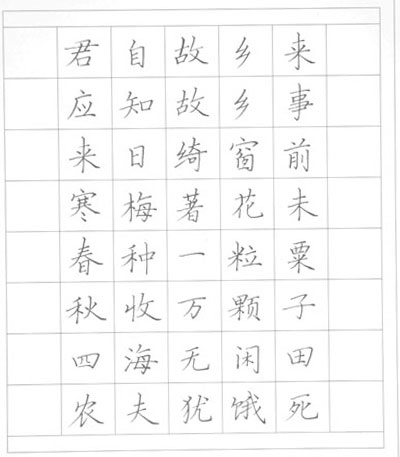 君自故乡来
应知故乡事
来日绮窗前
寒梅著花未
春种一粒粟
秋收万颗子
四海无闲田
农夫犹饿死